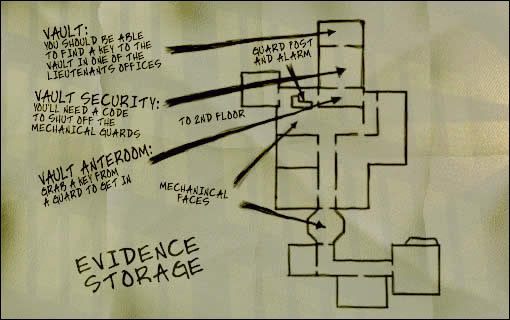 VAULT:
YOU SHOULD BE ABLE
TO FIND A KEY TO THE
VAULT IN ONE OF THE
LIEUTENANTS OFFICES
GUARD POST
AND ALARM
VAULT SECURITY:
YOU'LL NEED A CODE
TO SHUT OFF THE
MECHANICAL GUARDS
TO 2ND FLOOR
VAULT ANTEROOM:
GRAB A KEY FROM
A GUARD TO GET IN
MECHANINCAL
FACES
EVIDENCE
STORAGE